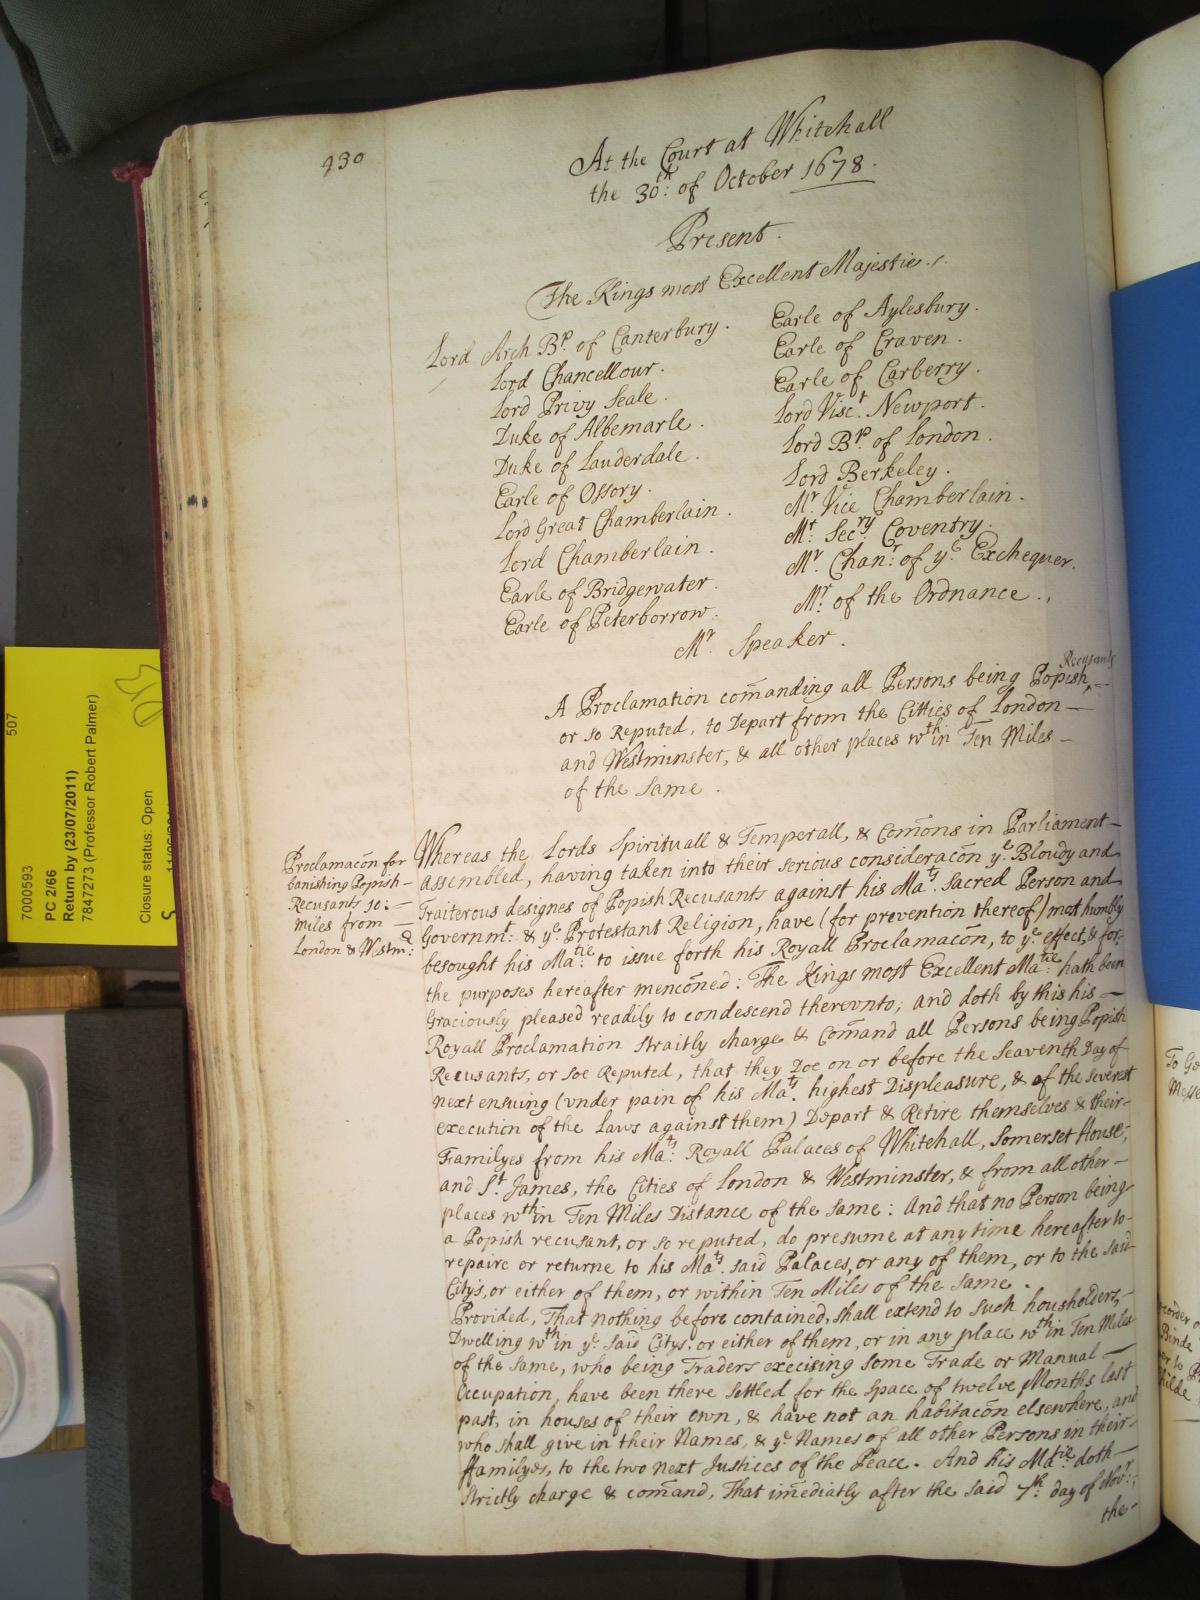 430
At the Court at Whitehall
the 30th: of October 1678.
Present.
The Kings most Excellent Majestie.
Lord Arch Bp. of Canterbury.
Lord Chancellour.
Lord Privy Seale.
Duke of Albemarle.
Duke of Lauderdale.
Earle of Ossory.
Lord Great Chamberlain.
Lord Chamberlain.
Earle of Bridgewater.
Earle of Peterborrow.
Earle of Aylesbury.
Earle of Craven.
Earle of Carberry.
Lord Visct. Newport.
Lord Bp. of London.
Lord Berkeley.
Mr. Vice Chamberlain.
Mr. Secry Coventry.
Mr. Chanr: of ye Exchequer.
Mr: of the Ordnance.
Mr. Speaker.
A Proclamation com̄anding all Persons being Popish Recusants
or so Reputed, to Depart from the Citties of London
and Westminster, & all other places wthin Ten Miles
of the Same.
Proclamac̄on for
banishing Popish
Recusants 10:
miles from
London & Westmr:
Whereas the Lords Spirituall & Temperall, & Com̄ons in Parliament
assembled, having taken into their serious considerac̄on ye Bloudy and
Traiterous designes of Popish Recusants against his Mats. Sacred Person and
Governmt: & ye Protestant Religion, have (for prevention thereof) most humbly
besought his Matie: to issue forth his Royall Proclamac̄on, to ye effect, & for
the purposes hereafter menc̄oned: The Kings most Excellent Matie: hath been
Graciously pleased readily to condescend therevnto; and doth by this his
Royall Proclamation straitly charge & Com̄and all Persons being Popish
Recusants, or soe Reputed, that they Doe on or before the Seaventh Day of
next ensuing (vnder pain of his Mats. highest Displeasure, & of the severest
execution of the Laws against them) Depart & Retire themselves & their
Familyes from his Mats: Royall Palaces of Whitehall, Somerset House,
and St. James, the Cities of London & Westminster, & from all other
places wthin Ten Miles Distance of the same: And that no Person being
a Popish recusant, or so reputed, do presume at any time hereafter to
repaire or returne to his Mats. said Palaces, or any of them, or to the said
Citys, or either of them, or within Ten Miles of the same.
Provided, That nothing before contained, shall extend to such housholders,
Dwelling wthin ye said Citys, or either of them, or in any place wthin Ten Miles
of the same, who being Traders execising some Trade or Manual
Occupation, have been there settled for the space of twelve Months last
past, in houses of their own, & have not an habitac̄on elsewhere, and
who shall give in their Names, & ye Names of all other Persons in their
ffamilyes, to the two next Justices of the Peace. And his Matie: doth
strictly charge & com̄and, That im̄ediatly after the said 7th: day of Novr:,
the
507
7000593
PC 2/66
Return by (23/07/2011)
7847273 (Professor Robert Palmer)
Closure status: Open
S
To Go
Messe
Binde